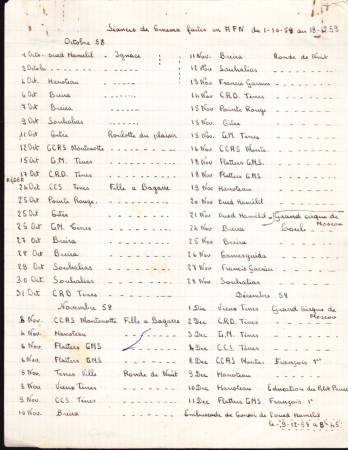 Séances de Cinéma faites en AFN du 1-10-58 au
Octobre 58
1 Oct. Oued Hamelil - Ignace
3 Octobre
4 Oct. Hanoteau
6 Oct Breira
7 Oct Breira
9 Oct Souhalias
11 Oct Gites Roulotte du plaisir
12 Oct CCAS Montenotte
15 Oct G.M. Ténes
17 Oct C.R.D. Ténes
24 Oct CCS Ténes Fille à Bagarre
25 Oct Pointe Rouge
25 Oct Gites
26 Oct G.M. Ténes
27 Oct Breira
28 Oct Breira
29 Oct Souhalias
30 Oct Souhalias
31 Oct C.R.D. Ténes
Novembre 58
3 Nov. CCAS Montenotte Fille a Bagarre
4 Nov. Hanoteau
6 Nov. Flatters GMS
6 Nov. Flatters GMS
8 Nov. Ténes Ville Ronde de Nuit
8 Nov. Vieux Ténes
9 Nov. CCS Ténes
10 Nov. Breira
11 Nov. Breira Ronde de Nuit
12 Nov Souhalias
13 Nov Francis Garnier
14 Nov C.R.D. Ténes
15 Nov Pointe Rouge
15 Nov Gites
15 Nov. G.M. Ténes
16 Nov CCAS Monte.
18 Nov. Flatters GMS.
18 Nov. Flatters GMS
19 Nov Hanoteau
20 Nov Oued Hamélil
21 Nov Oued Hamélil - Grand cirque de Moscou
24 Nov Breira
25 Nov Breira
26 Nov
27 Nov Francis Garnier
28 Nov Souhalias
Décembre 58
1 Dec Vieux Ténes Grand Cirque de Moscou
2 Dec C.R.D. Ténes
3 Dec G.M. Ténes
4 Dec CCS Ténes
8 Dec CCAS Montes François 1er
9 Dec Hanoteau
10 Dec Hanoteau Education du Petit Prince
11 Dec Flatters GMS François 1er
Embuscade de Convoi de l'oued Hamelil
le 19-12-58 a 8h 45